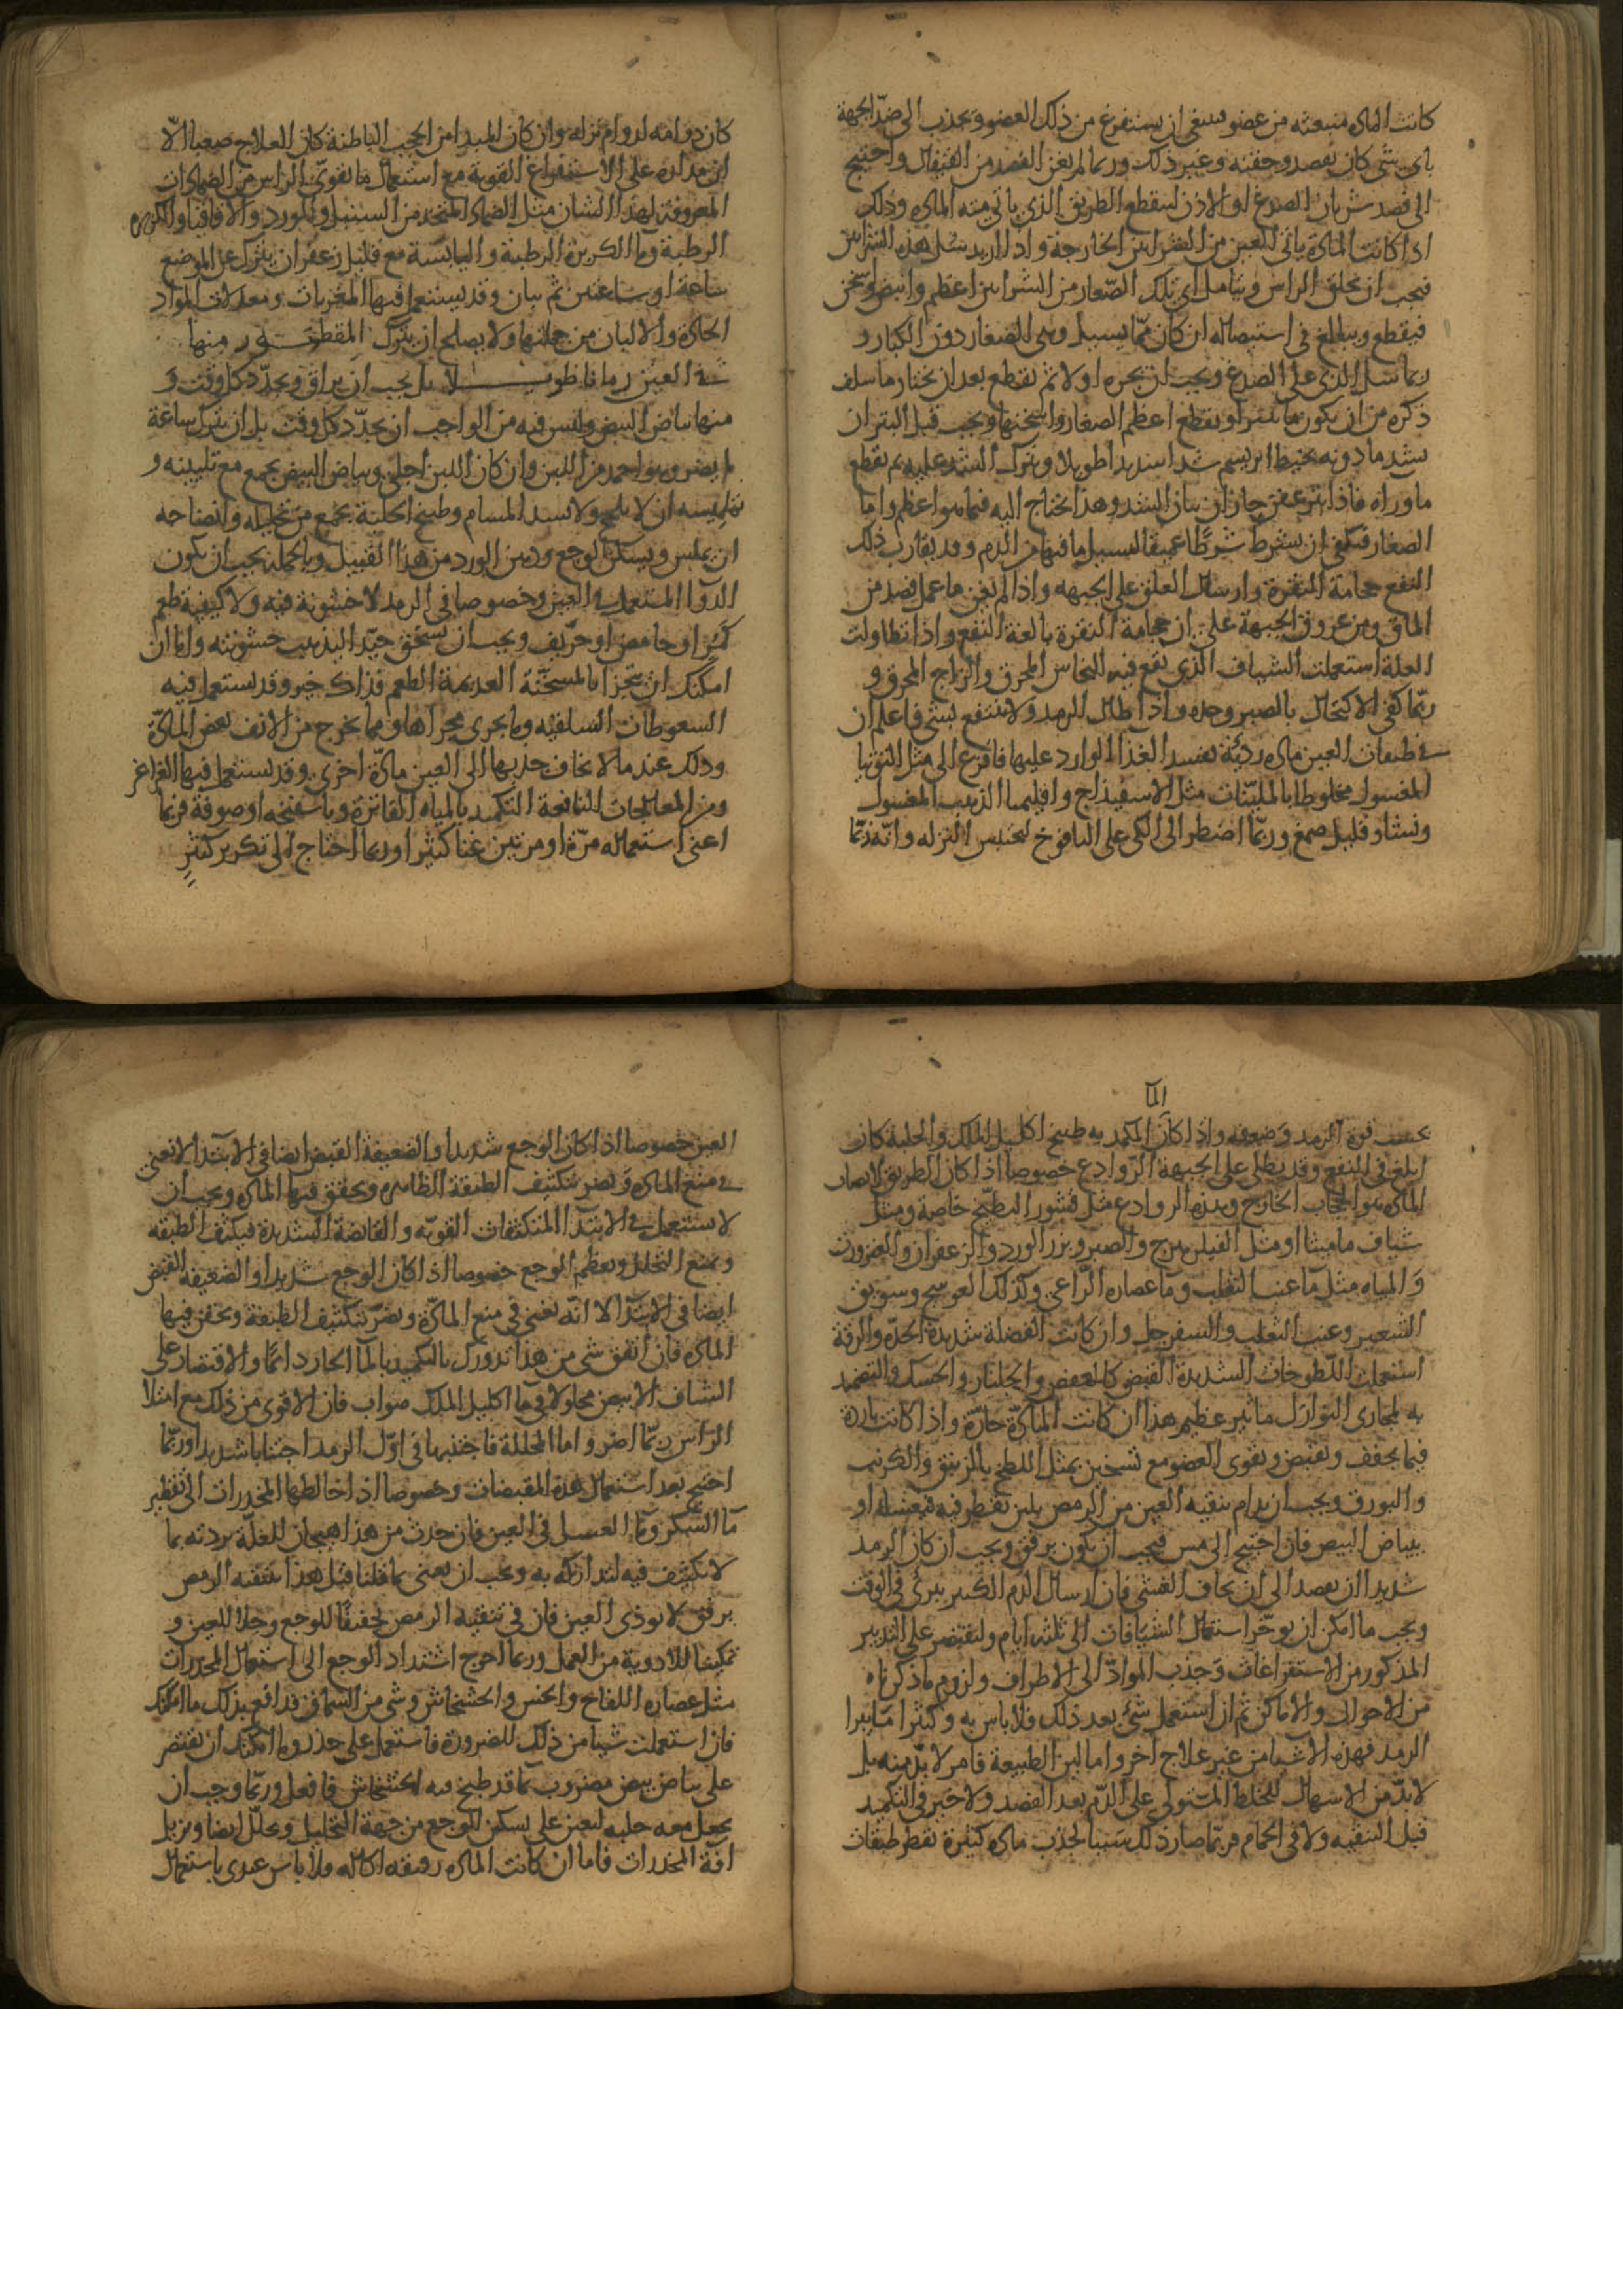 كانت المادة منبعثة من عضو فينبغي ان يستفرغ من ذلك العضو ويجذب الى ضد الجهة
باى شى كان بفصد وحقنه وغير ذلك وربما لم يغن الفصد من القيفال واحتيج
الى فصد شريان الصدغ او الاذن لينقطع الطريق الذي ياتى منه المادة وذلك
اذا كانت المادة ياتى للعين من الشرايين الخارجة واذا اريد سل هذه الشرايين
فيجب ان يحلق الراس ويتامل اى تلك الصغار من الشرايين اعظم وانبض واسخن
فيقطع ويبالغ فى استيصاله ان كان مما يسيل وهى الصغار دون الكبار و
ربما سل الذى على الصدغ ويجب ان يحزه اولا ثم يقطع بعد ان يختار ما سلف
ذكره من ان يكون ما يبتر او يقطع اعظم الصغار واسخنها ويجب قبل البتر ان
يشد ما دونه بخيط ابريسم شدا شديدا طويلا ويترك الشد عليه ثم يقطع
ماوراه فاذا عفن جاز ان يبان الشد وهذا يحتاج اليه فيما هو اعظم واما
الصغار فيكفى ان يشرط شرطًا عميقا ليسيل ما فيها من الدم وقد يقارب ذلك
النفع حجامة النقرة وارسال العلق على الجبهه واذا لم يغن ما عمل فصد من
الماق ومن عروق الجبهة على ان حجامة النقرة بالغة النفع واذا تطاولت
العلة استعملت الشياف الذي يقع فيه النحاس المحرق والزاج المحرق و
ربّما كفى الاكتحال بالصبر وحده واذا طال الرمد ولا ينتفع بشى فاعلم ان
فى طبقات العين مادة رديّة يفسد الغذا الوارد عليها فافزع الى مثل التوتيا
المغسول مخلوطا بالمليّنات مثل الاسفيذاج واقليميا الذهب المغسول
ونشا وقليل صمغ وربّما اضطر الى الكى على اليافوخ لتحتبس النزله وانّه ربّما
كان دوامه لدوام نزله وان كان المبدا من الحجب الباطنة كان العلاج صعبا الّا
ان مداره على الاستفراغ القوية مع استعمال ما يقوّى الراس من الضمادات
المعروفة لهذا الشان مثل الضماد المتخذ من السنبل والورد والاقاقيا والكزبره
الرطبة وما الكزبرة الرطبة واليابسة مع قليل زعفران يترك على الموضع
ساعة او ساعتين ثم يبان وقد يستعمل فيها المغريات ومعدلات المواد
الحادة والالبان من جملتها ولا يصلح ان يترك المقطور منها
فى العين زمانا طويلا بل يجب ان يراق ويجدّد كل وقت و
منها بياض البيض وليس فيه من الواجب ان يجدّد كل وقت بل ان يترك ساعة
لم يضر وهو احمد من اللبن وان كان اللبن اجلى وبياض البيض يجمع مع تليينه و
تمليسه ان لا يلحج ولا يسد المسام وطبيخ الحلبة يجمع من تحليله وانضاجه
ان يملس ويسكن الوجع ودهن الورد من هذا القبيل وبالجمله يجب ان يكون
الدوآ المستعمل فى العين وخصوصا فى الرمد لا خشونة فيه ولا كيفية طعم
كمرّ او حامض او حرّيف ويجب ان يسحق جيّدا ليذهب خشونته واما ان
امكنك ان تجتزا بالمسخّنة العديمة الطعم فذاك خير وقد يستعمل فيه
السعوطات السلقيّه وما يجرى مجراها ومما يخرج من الانف بعض المادّة
وذلك عندما لا يخاف جذبها الى العين مادّة اخرى وقد يستعمل فيها الغراغر
ومن المعالجات النافعة التكميد بالمياه الفاترة وباسفنجه او صوفة فربما
اغنى استعماله مرّة او مرتين غنا كثيرا وربما احتاج الى تكرير كثير
المآ
بحسب قوة الرمد وضعفه واذا كان المكمد به طبيخ اكليل الملك والحلبة كان
ابلغ فى النفع وقد يطلى على الجبهة الروادع خصوصا اذا كان الطريق لانصاب
المادة هو الحجاب الخارج وهذه الروادع مثل قشور البطيخ خاصة ومثل
شياف ماميثا او مثل الفيلزهرج والصبر وبزر الورد والزعفران والعنزروت
وَ المياه مثل مآ عنب الثعلب ومآ عصاره الراعى وكذلك العوسج وسويق
الشعير وعنب الثعلب والسفرجل وان كانت الفضلة شديدة الحدّة والرقة
استعملت اللطوخات الشديدة القبض كالعفص والجلنار والحسك والتضميد
به لمجارى النوازل تاثير عظيم هذا ان كانت المادّة حارّة واذا كانت باردة
فبما يجفف ويقبض ويقوى العضو مع تسخين بمثل اللطخ بالزيبق والكرنب
والبورق ويجب ان يدام تنقيه العين من الرمص بلبن يقطر فيه فيغسله او
ببياض البيض فان احتيج الى مس فيجب ان يكون برفق ويجب ان كان الرمد
شديدا ان يفصد الى ان يخاف الغشى فان ارسال الدم الكثير يبرئ فى الوقت
ويجب ما امكن ان يوخر استعمال الشيافات الى ثلثه ايام وليقتصر على التدبير
المذكور من الاستفراغات وَجذب الموادّ الى الاطراف ولزوم ما ذكرناه
من الاحوال والاماكن ثم ان استعمل شئ بعد ذلك فلا باس به وكثيرا ما يبرا
الرمد فهذه الاشيا من غير علاج اخر واما لين الطبيعة فامر لا بدّ منه بل
لا بدّ من الاسهال للخلط المتولى على الدّم بعد الفصد ولا خير فى التكميد
قبل التنقيه ولا فى الحمام فربّما صار ذلك سببا لجذب مادة كثيرة يقطر طبقات
العين خصوصا اذا كان الوجع شديدا والضعيفة القبض ايضا فى الابتدآ لا تغنى
فى منع المادة وَ تضر بتكثيف الطبقة الظاهره ويحقن فيها المادة ويجب ان
لا تستعمل فى الابتدآ المتكثفات القويّه والقابضة الشديدة فيكثف الطبقه
ويمنع التحلل ويعظم الوجع خصوصا اذا كان الوجع شديدا والضعيفة القبض
ايضا فى الابتدآ لا انّه تغنى فى منع المادّة ويضرّ بتكثيف الطبقة ويحقن فيها
المادة فان اتفق شى من هذا تدورك بالتكميد بالمآ الحار دائما والاقتصار على
الشياف الابيض محلولا فى ما اكليل الملك صواب فان الاقوى من ذلك مع امتلا
الراس ربّما اضر واما المحللة فاجتنبها فى اوّل الرمد اجتنابا شديدا وربّما
احتيج بعد استعمال هذه المقبضات وخصوصا اذا خالطها المخدرات الى تقطير
مآ السّكر ومآ العسل فى العين فان حدث من هذا هيجان للعلّة بردته بما
لا تكثيف فيه لتداركه به ويجب ان يعنى بما قلنا قبل هذا بتنقيه الرمص
برفق لا يوذى العين فان فى تنقية الرمص تخفيفًا للوجع وجلا للعين و
تمكينا للادوية من العمل وربما احوج اشتداد الوجع الى استعمال المخدرات
مثل عصاره اللفاح والخس والخشخاش وشى من السماق فدافع بذلك ما امكنك
فان استعملت شيا من ذلك للضرورة فاستعمل على حذر وما امكنك ان تقتصر
على بياض بيض مضروب بمآ قد طبخ فيه الخشخاش فافعل وربّما وجب ان
يجعل معه حلبه لتعين على تسكين الوجع من جهة التحليل ويحلل ايضا ويزيل
افة المخدرات فاما ان كانت المادة رقيقه اكاله فلا باس عندى باستعمال